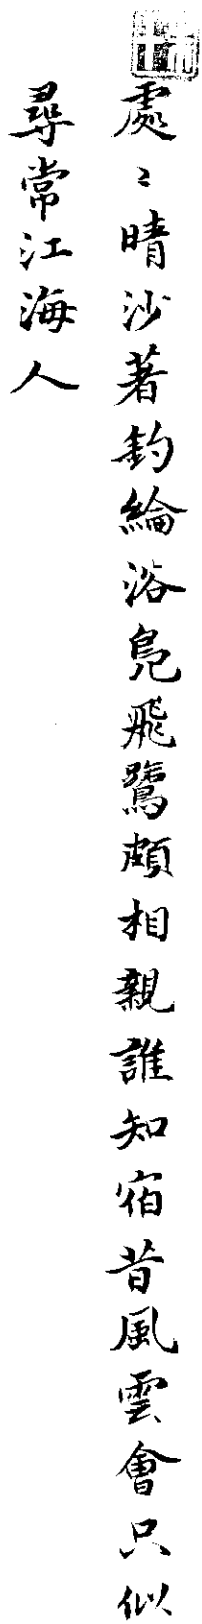 處〻晴沙著釣綸浴鳧飛鷺頗相親誰知宿昔風雲會只似
尋常江海人